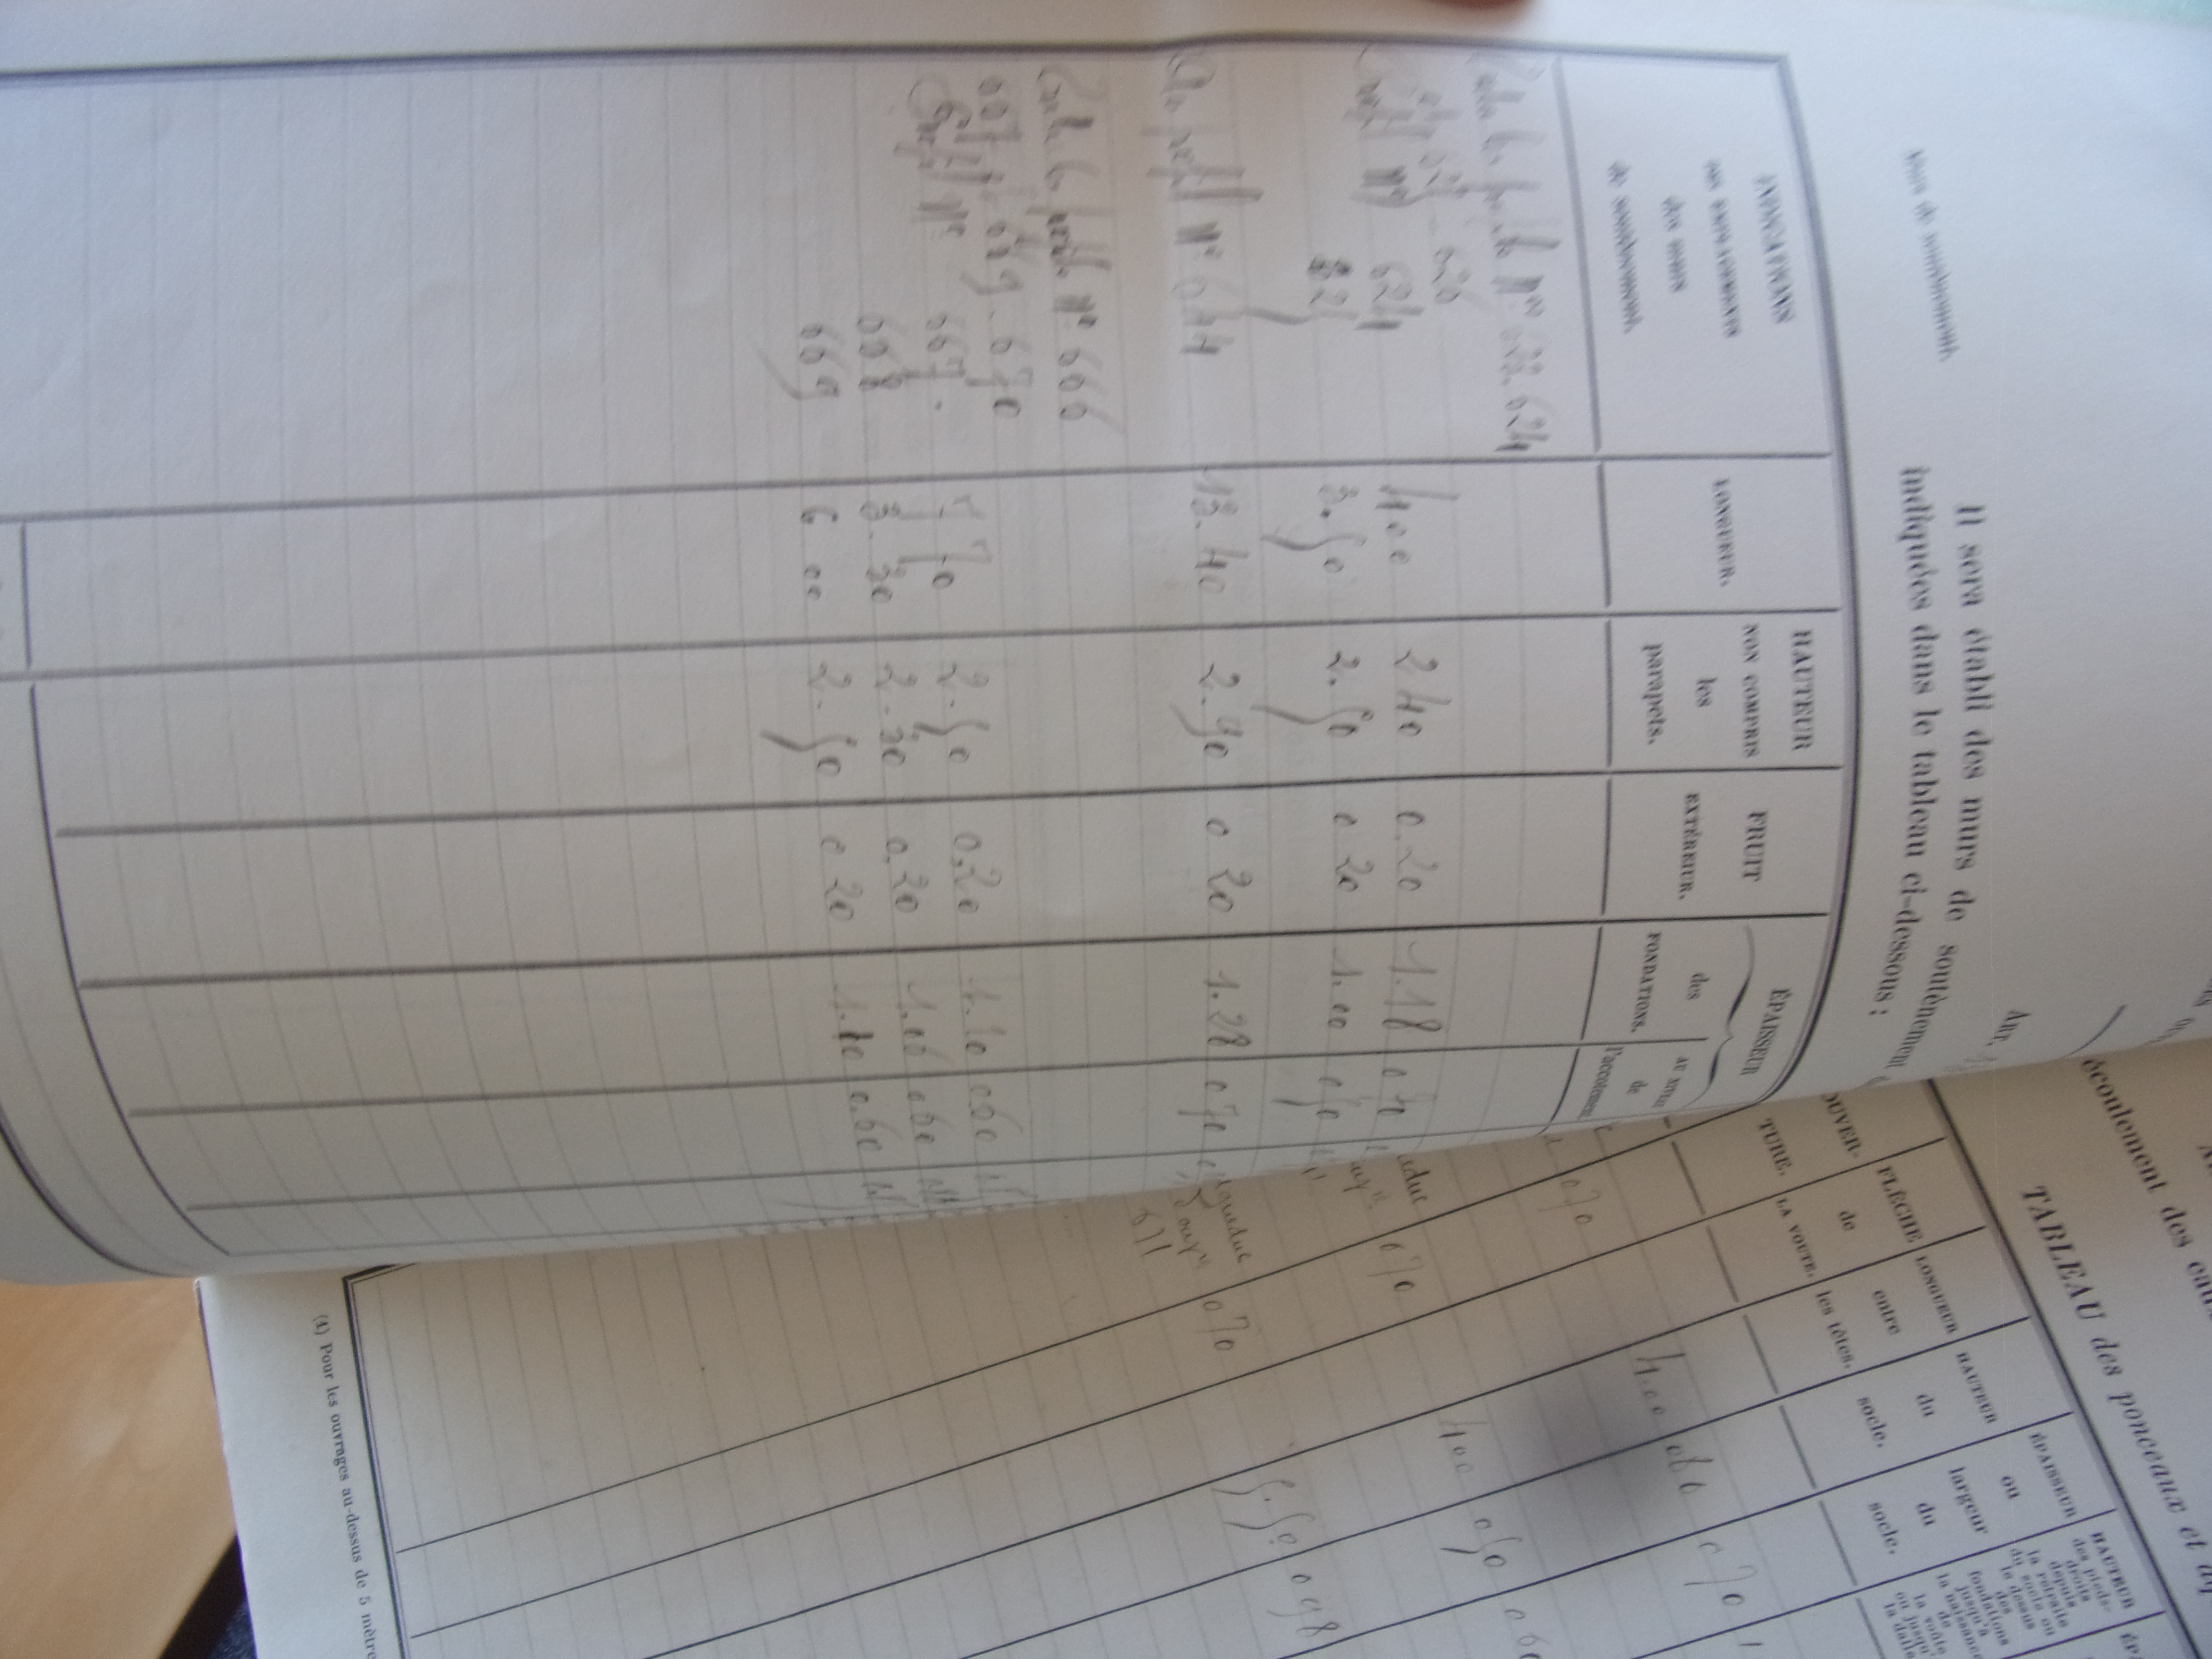 ART.
Il sera établi des murs de soutènement
indiquées dans le tableau ci-dessous :
Murs de soutènement.
INDICATIONS
DES EMPLACEMENTS
des murs
de soutènement.
LONGUEUR.
HAUTEUR
NON COMPRIS
les
parapets.
FRUIT
EXTÉRIEUR.
ÉPAISSEUR
des
FONDATIONS.
AU NIVEAU
de
l'accotement.
Entre les profils Nos 623. 624
et 625 - 626
Profil No 624 4 00 2 40 0.20 1.18 0 70
625 3. 50 2. 50 0 20 1. 00 0 50
Au profil No 644 13. 40 2. 90 0 20 1. 28 0 70
Entre les profils No 666
667 et 669. 670
Profil No 667. 7 70 2. 50 0,20 1. 10 0 60
668 3. 30 2. 30 0,20 1.06 0 60
669 6 00 2. 50 0 20 1. 10 0.60
écoulement des eaux
TABLEAU des ponceaux et
OUVER-
TURE.
FLÈCHE
de
LA VOUTE.
LONGUEUR
entre
les têtes.
HAUTEUR
du
socle.
ÉPAISSEUR
ou
largeur
du
socle.
HAUTEUR
des pieds-
droits
depuis
la retraite
du socle ou
le dessus
des
fondations
jusqu'à
la naissance
de
la voûte
ou jusqu'
la dalle
0 70 4.00 0 60 0 70
0 70 4 00 0 50 0 60
0 70 5. 50 0 98
671
(1) Pour les ouvrages au-dessus de 5 mètre